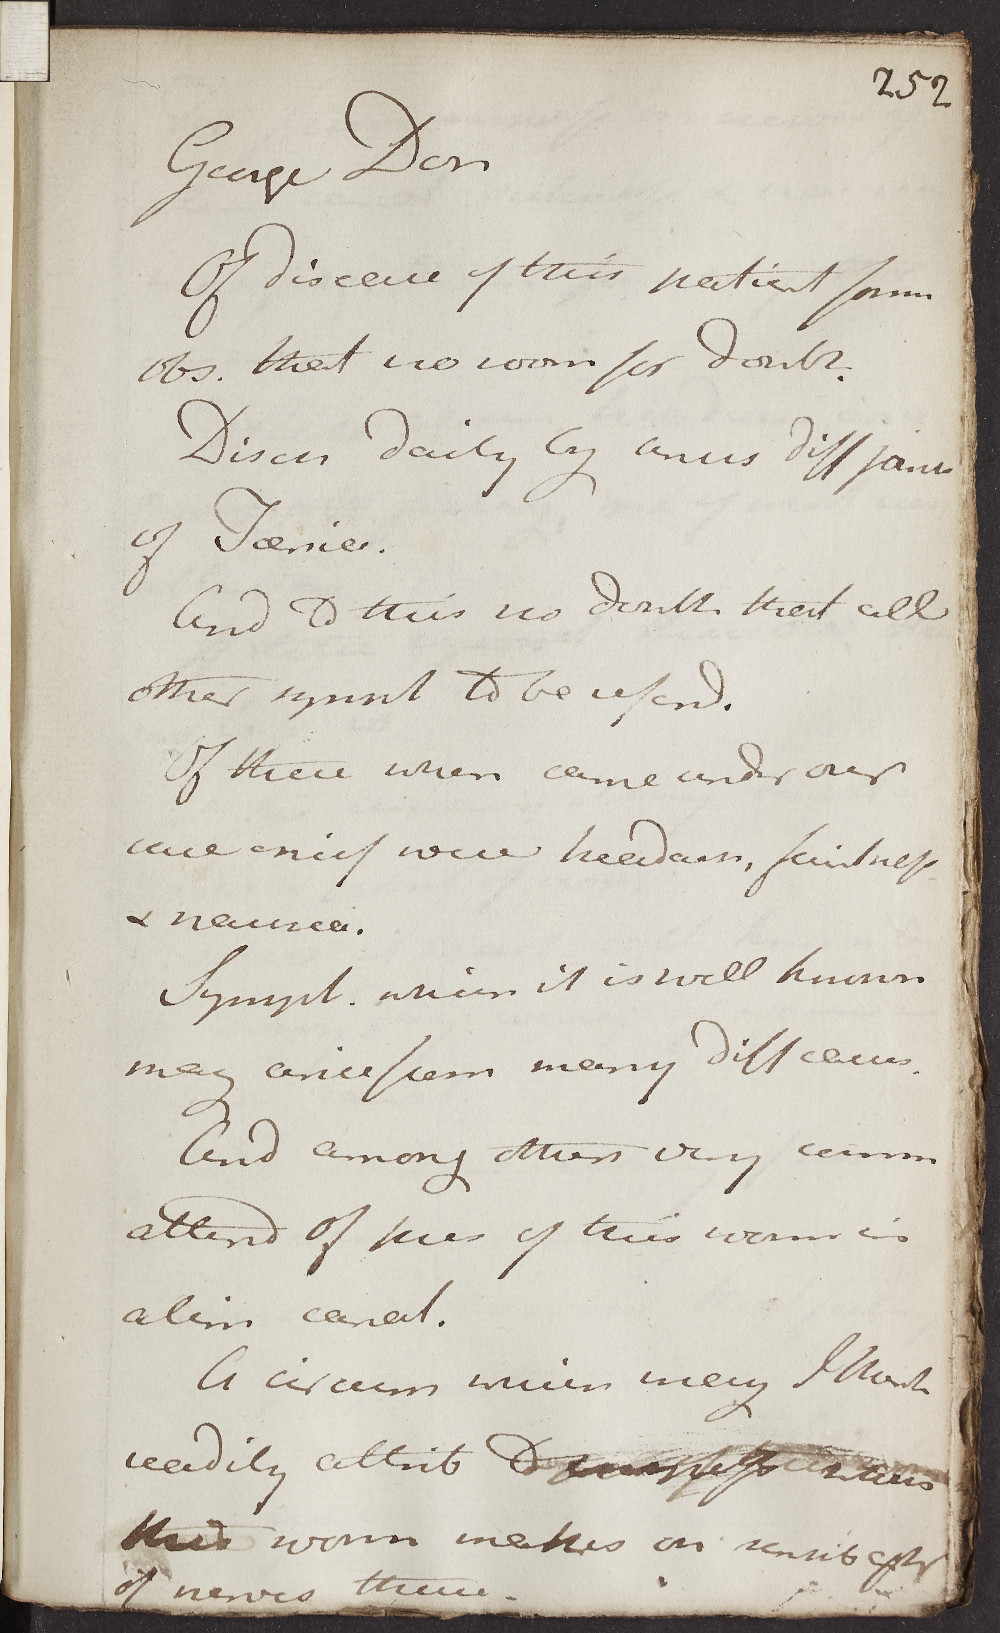 252
George Don
Of disease of this patient form
obs. that no room for doubt.
Disch daily by anus diff joints
of Tænia.
And to this no doubt that all
other sympt to be referd.
Of these when came under our
care chief were headach, faintness
& nausea.
Sympt. which it is well known
may arise from many diff causes.
And among others very comm
attend of pres of this worm in
alim canal.
A circum which may I think
readily attrib to
this worm makes on sensib
of nerves there.